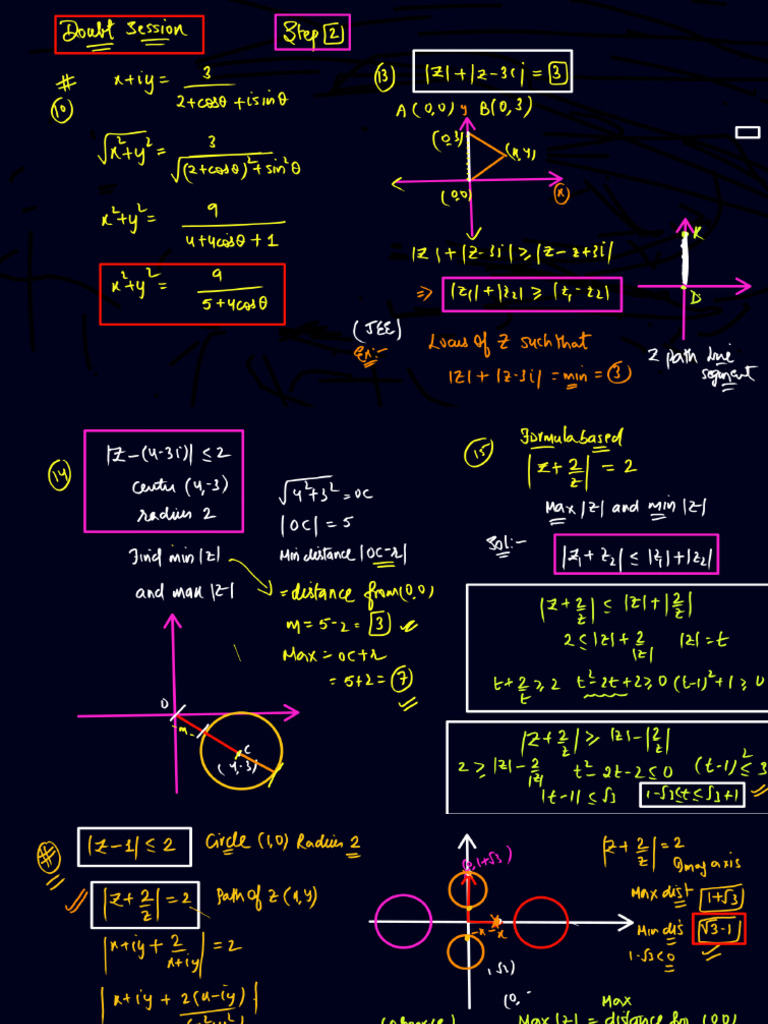 Doubt Session
Step 2
#
10
x+iy = 3 / (2+cosθ+isinθ)
√(x²+y²) = 3 / √((2+cosθ)²+sin²θ)
x²+y² = 9 / (4+4cosθ+1)
x²+y² = 9 / (5+4cosθ)
13
|z|+|z-3i| = 3
A(0,0) y B(0,3)
(0,3)
(x,y)
(0,0)
x
|z|+|z-3i| ≥ |z-z+3i|
⇒ |z₁|+|z₂| ≥ |z₁-z₂|
(JEE)
Ex:- Locus of z such that
|z|+|z-3i| = min = 3
z path line
segment
14
|z-(4-3i)| ≤ 2
center (4,-3)
radius 2
Find min|z|
and max|z|
√(4²+3²) = OC
|OC| = 5
Min distance |OC-r|
= distance from (0,0)
m = 5-2 = 3
Max = OC+r
= 5+2 = 7
O
m
C
(4,-3)
15
Formula based
|z+2/z| = 2
Max|z| and min|z|
Sol:-
|z₁+z₂| ≤ |z₁|+|z₂|
|z+2/z| ≤ |z|+|2/z|
2 ≤ |z|+2/|z| |z|=t
t+2/t ≥ 2 t²-2t+2 ≥ 0 (t-1)²+1 ≥ 0
|z+2/z| ≥ |z|-|2/z|
2 ≥ |z|-2/|z| t²-2t-2 ≤ 0 (t-1)² ≤ 3
|t-1| ≤ √3 1-√3 ≤ t ≤ √3+1
#
|z-1| ≤ 2 Circle (1,0) Radius 2
|z+2/z| = 2 Path of z (x,y)
|x+iy+2/(x+iy)| = 2
|x+iy+2(x-iy)
1+√3)
-x
x
√3)
(0,
|z+2/z| = 2
axis
Max dist 1+√3
Min dis √3-1
1-√3<0
Max
Max|z| = distance
(0,0)